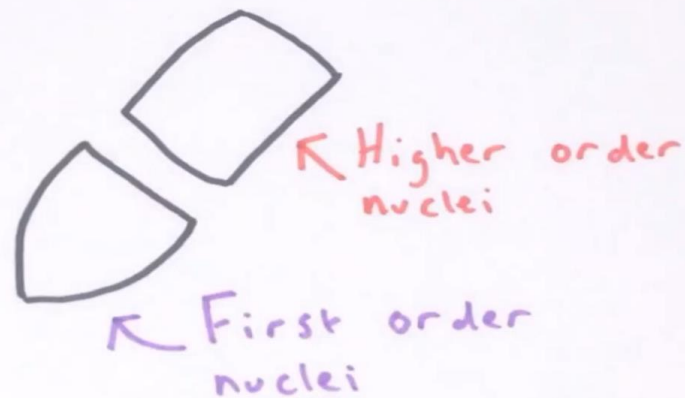 Higher order
nuclei
First order
nuclei